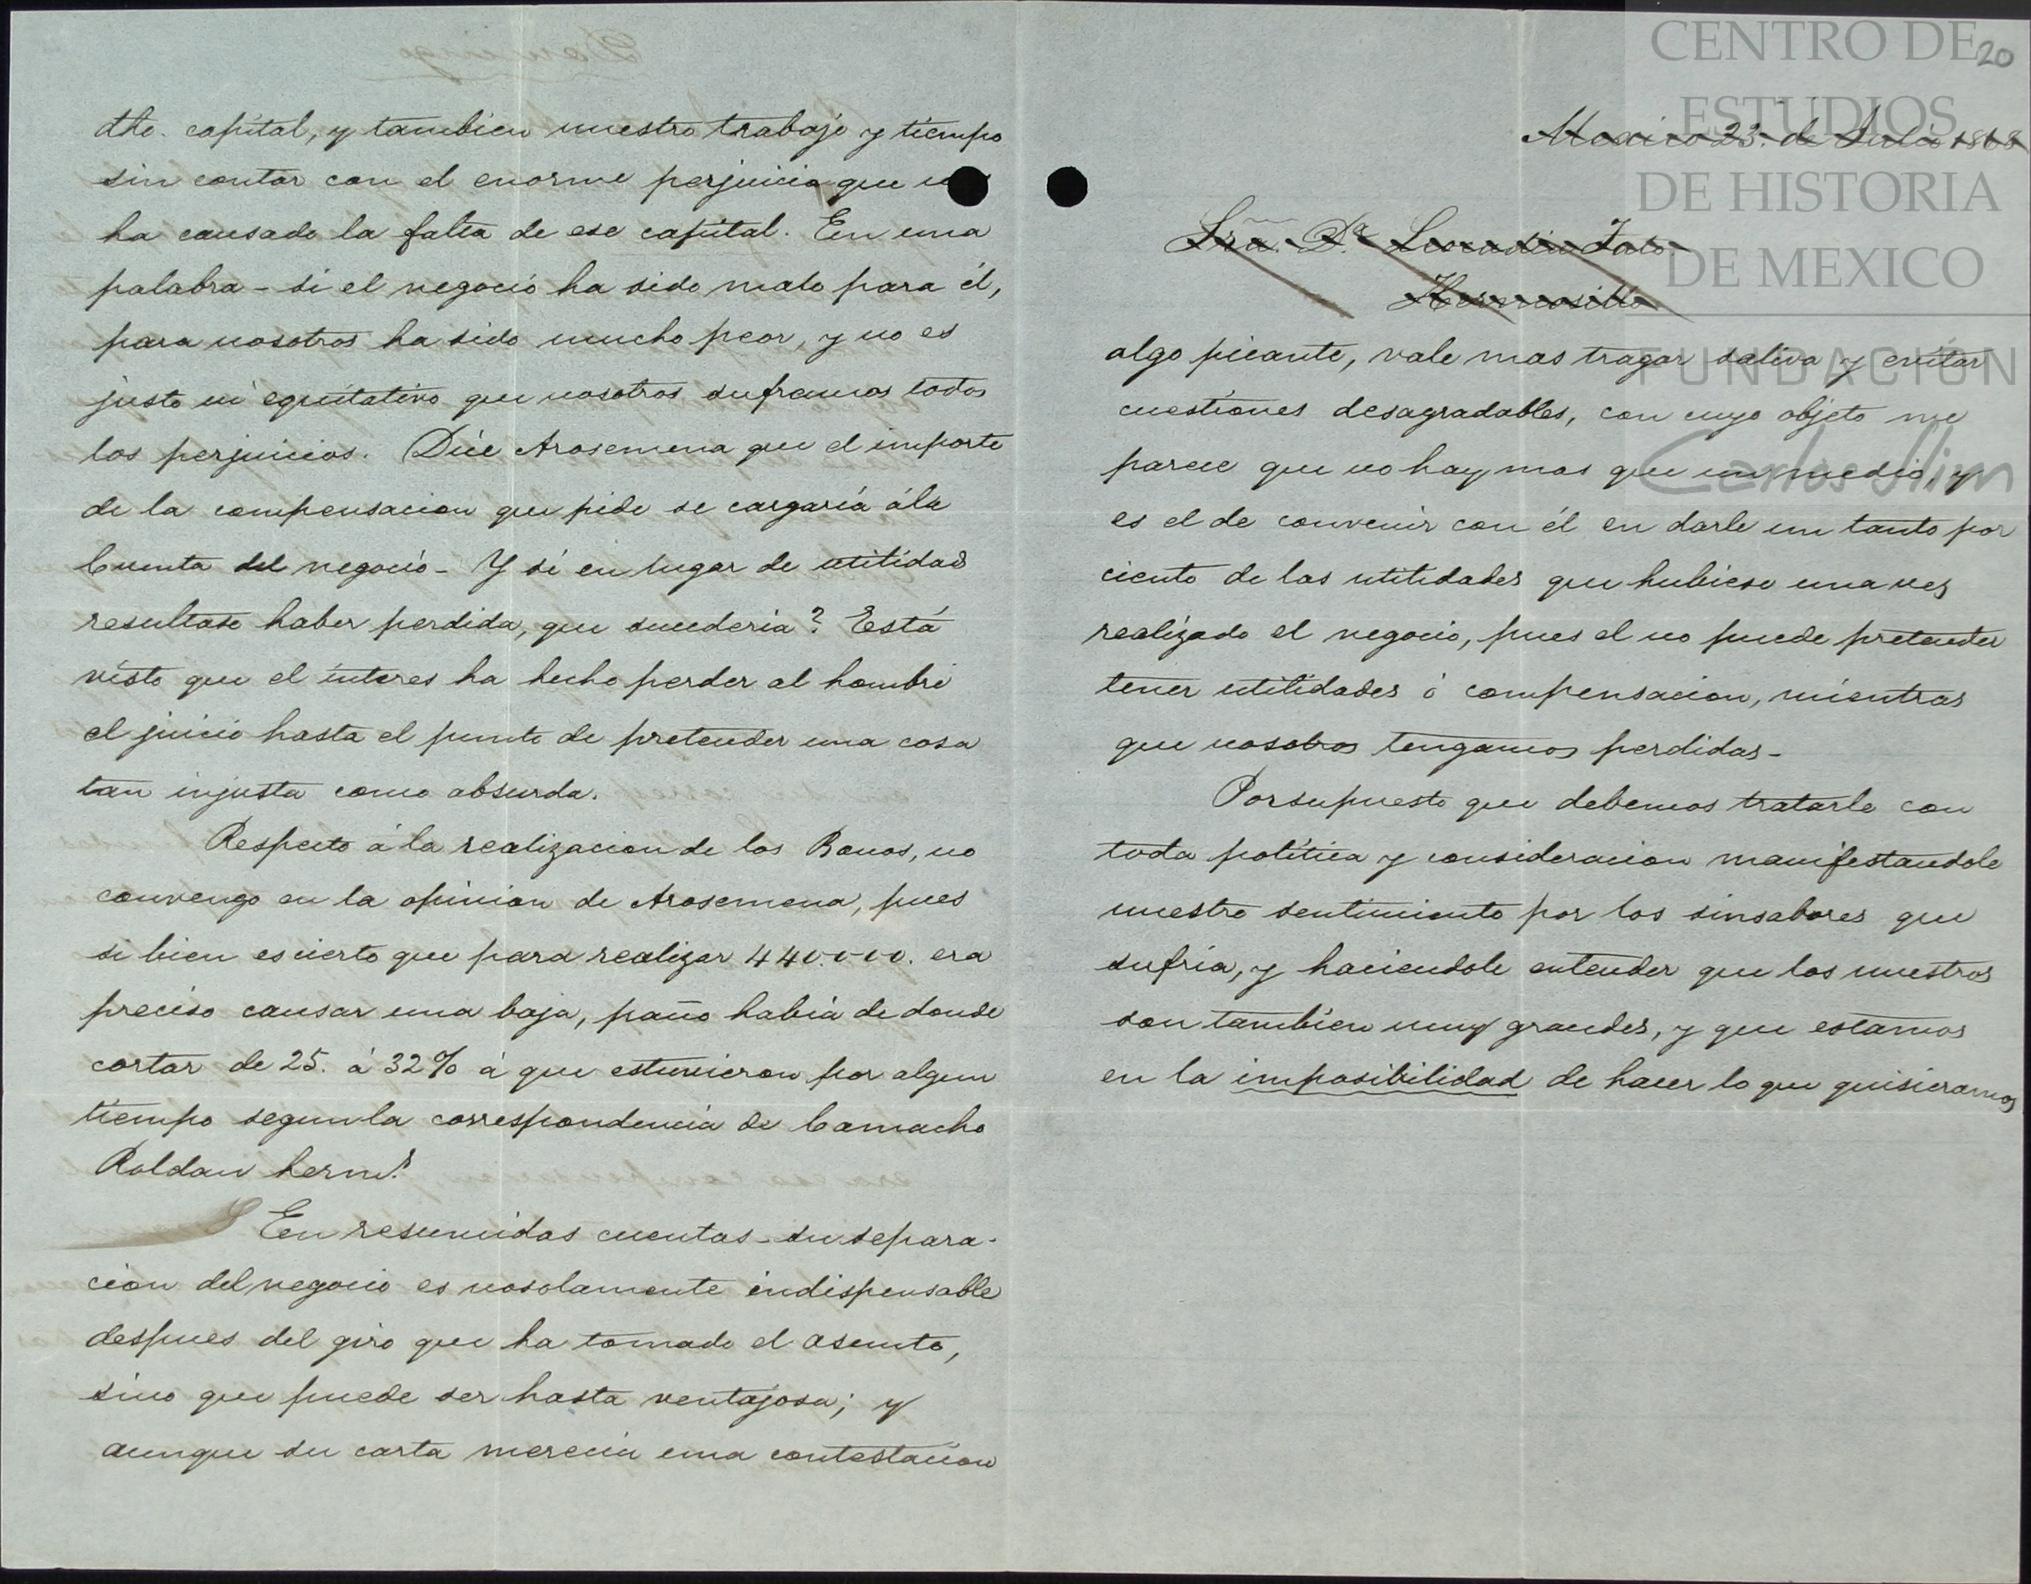 dho. capital, y tambien nuestro trabajo y tiempo
sin contar con el enorme perjuicio que
ha causado la falta de ese capital. En una
palabra - si el negocio ha sido malo para él,
para nosotros ha sido mucho peor, y no es
justo ni equitativo que nosotros suframos todos
los perjuicios. Dice Arosemena que el importe
de la compensacion que pide se cargaría á la
Cuenta del negocio - Y si en lugar de utilidad
resultase haber perdida, que sucederia? Está
visto que el interes ha hecho perder al hombre
el juicio hasta el punto de pretender una cosa
tan injusta como absurda.
Respecto á la realizacion de los Bonos, no
convengo en la opinion de Arosemena, pues
si bien es cierto que para realizar 440.000. era
preciso causar una baja, paño habia de donde
cortar de 25. á 32% á que estuvieron por algun
tiempo segun la correspondencia de Camacho
Roldan herms.
En resumidas cuentas - su separa-
cion del negocio es nosolamente indispensable
despues del giro que ha tomado el asunto,
sino que puede ser hasta ventajosa; y
aunque su carta merecia una contestacion
20
Mexico 23. de Julio 1868
Sra. Da.
Hermosillo
algo picante, vale mas tragar saliva y evitar
cuestiones desagradables, con cuyo objeto me
parece que no hay mas que un medio, y
es el de convenir con él en darle un tanto por
ciento de las utilidades que hubiese una vez
realizado el negocio, pues el no puede pretender
tener utilidades ó compensacion, mientras
que nosotros tengamos perdidas -
Porsupuesto que debemos tratarle con
toda política y consideracion manifestandole
nuestro sentimiento por los sinsabores que
sufria, y haciendole entender que los nuestros
son tambien muy grandes, y que estamos
en la imposibilidad de hacer lo que quisieramos
CENTRO DE
ESTUDIOS
DE HISTORIA
DE MEXICO
FUNDACIÓN
Carlos Slim